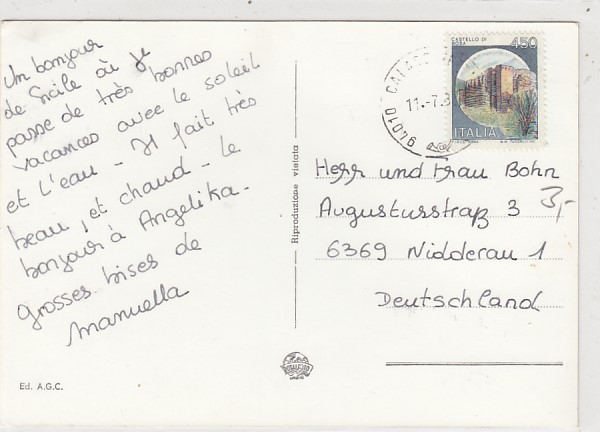 Un bonjour
de Sicile où je
passe de très bonnes
vacances avec le soleil
et l'eau - Il fait très
beau, et chaud - le
bonjour à Angelika -
grosses bises de
manuella
Ed. A.G.C.
Riproduzione vietata
CASTELLO DI
450
ITALIA
94010 CALAS
11.-7.8
Herr und Frau Bohn
Augustusstraß 3
3,-
6369 Nidderau 1
Deutschland